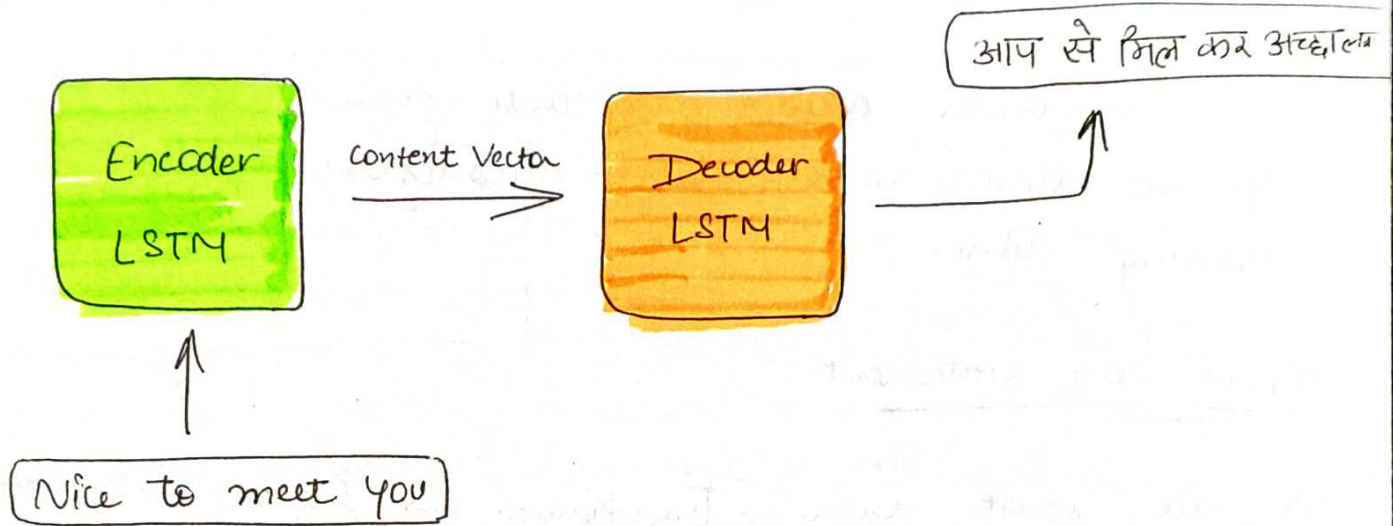 आप से मिल कर अच्छा
Encoder
LSTM
Content Vector
Decoder
LSTM
Nice to meet you